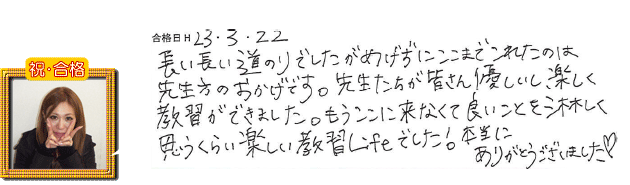 合格日H 23・3・22
祝・合格
長い長い道のりでしたがめげずにここまでこれたのは
先生方のおかげです。先生たちが皆さん優しいし、楽しく
教習ができました。もうここに来なくて良いことを淋しく
思うくらい楽しい教習Lifeでした！本当に
ありがとうございました♡